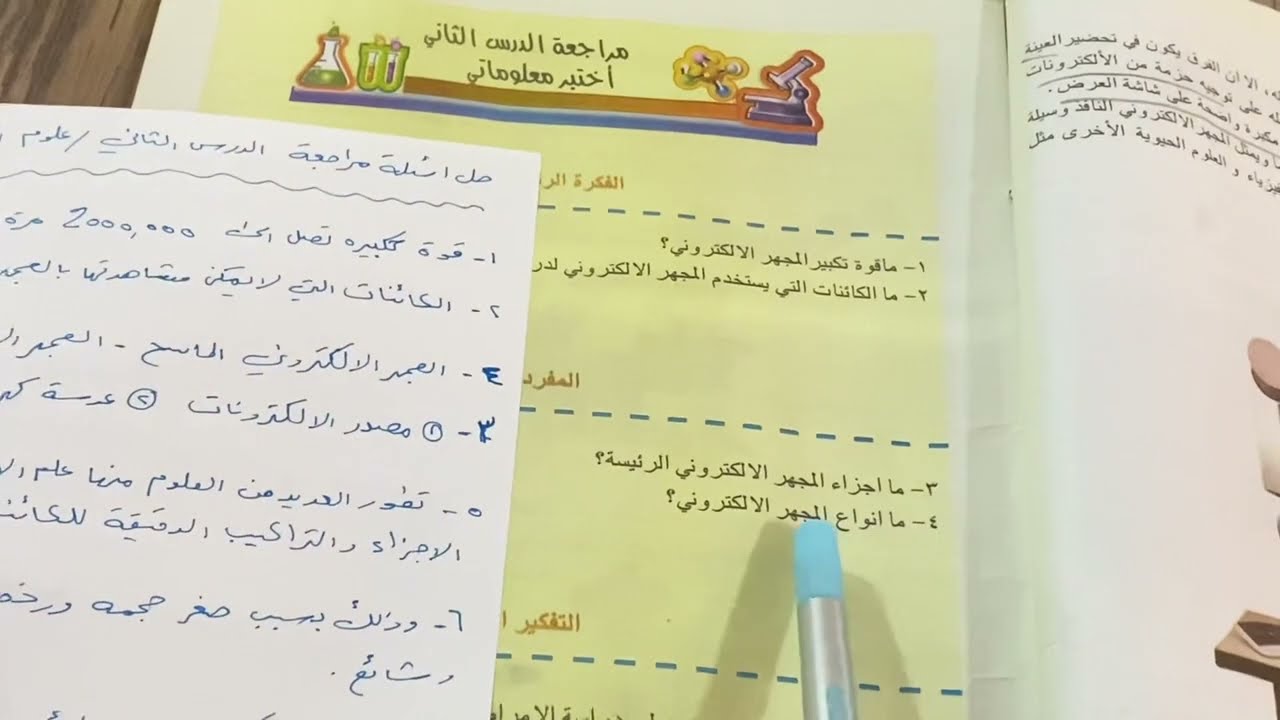 مراجعة الدرس الثاني
أختبر معلوماتي
الفكرة
١- ماقوة تكبير المجهر الالكتروني؟
٢- ما الكائنات التي يستخدم المجهر الالكتروني
٣- ما اجزاء المجهر الالكتروني الرئيسة؟
٤- ما انواع المجهر الالكتروني؟
التفكير
حل اسئلة مراجعة الدرس الثاني / علوم
١- قوة تكبيره تصل الى 2000,000 مرة
٢- الكائنات التي لا يمكن مشاهدتها
٤- المجهر الالكتروني الماسح -
٣- ① مصدر الالكترونات ② عدسة
٥- تطور العديد من العلوم منها علم
الاجزاء والتراكيب الدقيقة
٦- وذلك بسبب صغر حجمه
وشائع.
الا ان الفرق يكون في تحضير العينة
على توجيه حزمة من الألكترونات
مكبرة واضحة على شاشة العرض.
ويمثل المجهر الالكتروني النافذ وسيلة
و العلوم الحيوية الأخرى مثل